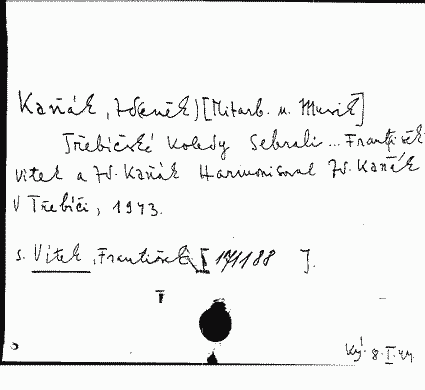 Kaňák, Zdeněk) [Mitarb. u. Musik]
Třebíčské koledy Sebrali ... František
Vitek a Zd. Kaňák Harmonisoval Zd. Kaňák
V Třebíči, 1943.
s. Vitek, František [ 171188 ].
Ký. 8. I. 44